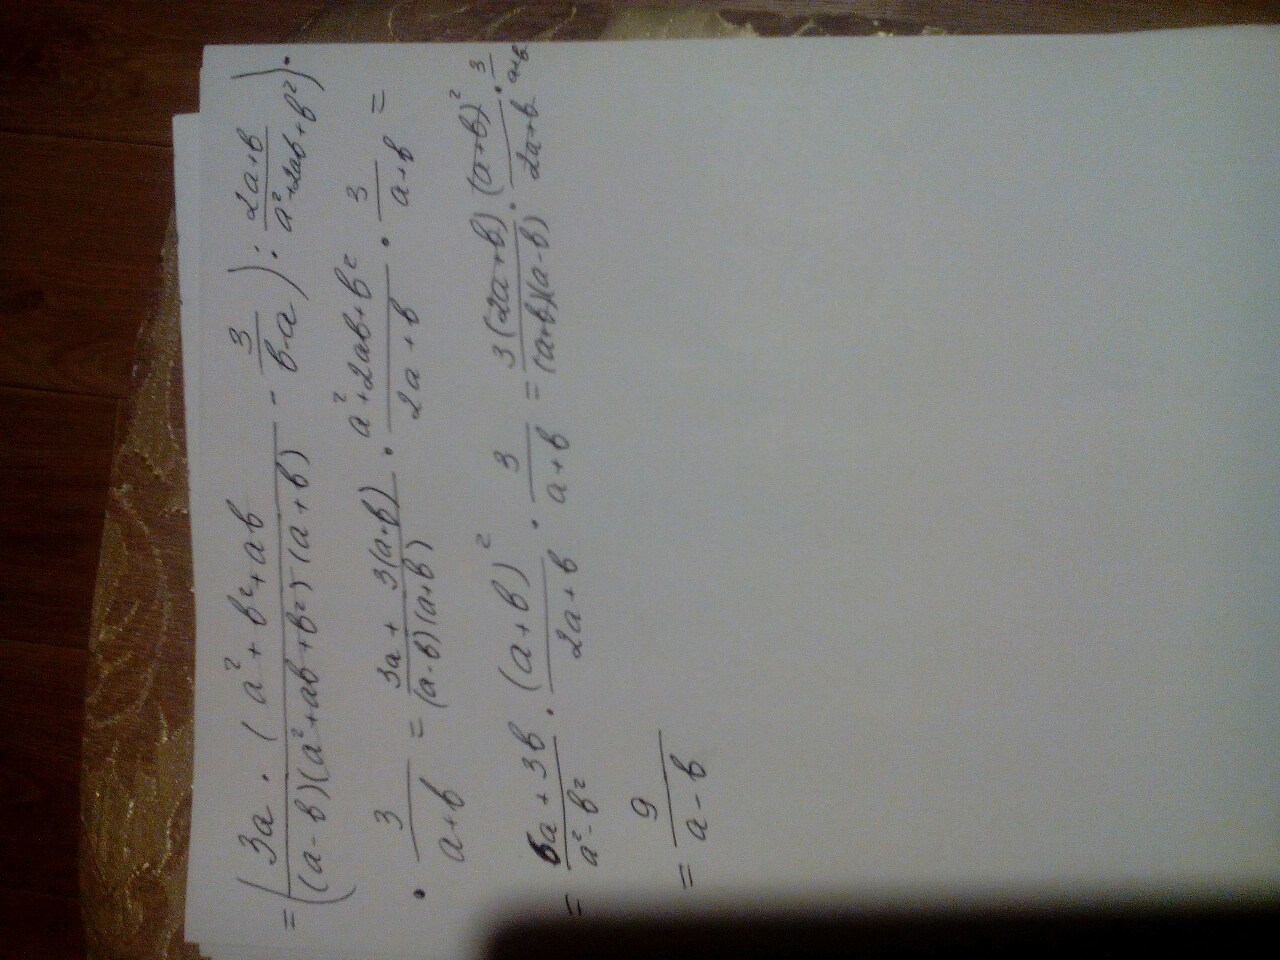 = (3a · (a² + b² + ab / (a - b)(a² + ab + b²)(a + b) - 3 / b - a) : 2a + b / a² + 2ab + b²) ·
· 3 / a + b = 3a + 3(a + b) / (a - b)(a + b) · a² + 2ab + b² / 2a + b · 3 / a + b =
= 6a + 3b / a² - b² · (a + b)² / 2a + b · 3 / a + b = 3(2a + b) / (a + b)(a - b) · (a + b)² / 2a + b · 3 / a + b
= 9 / a - b